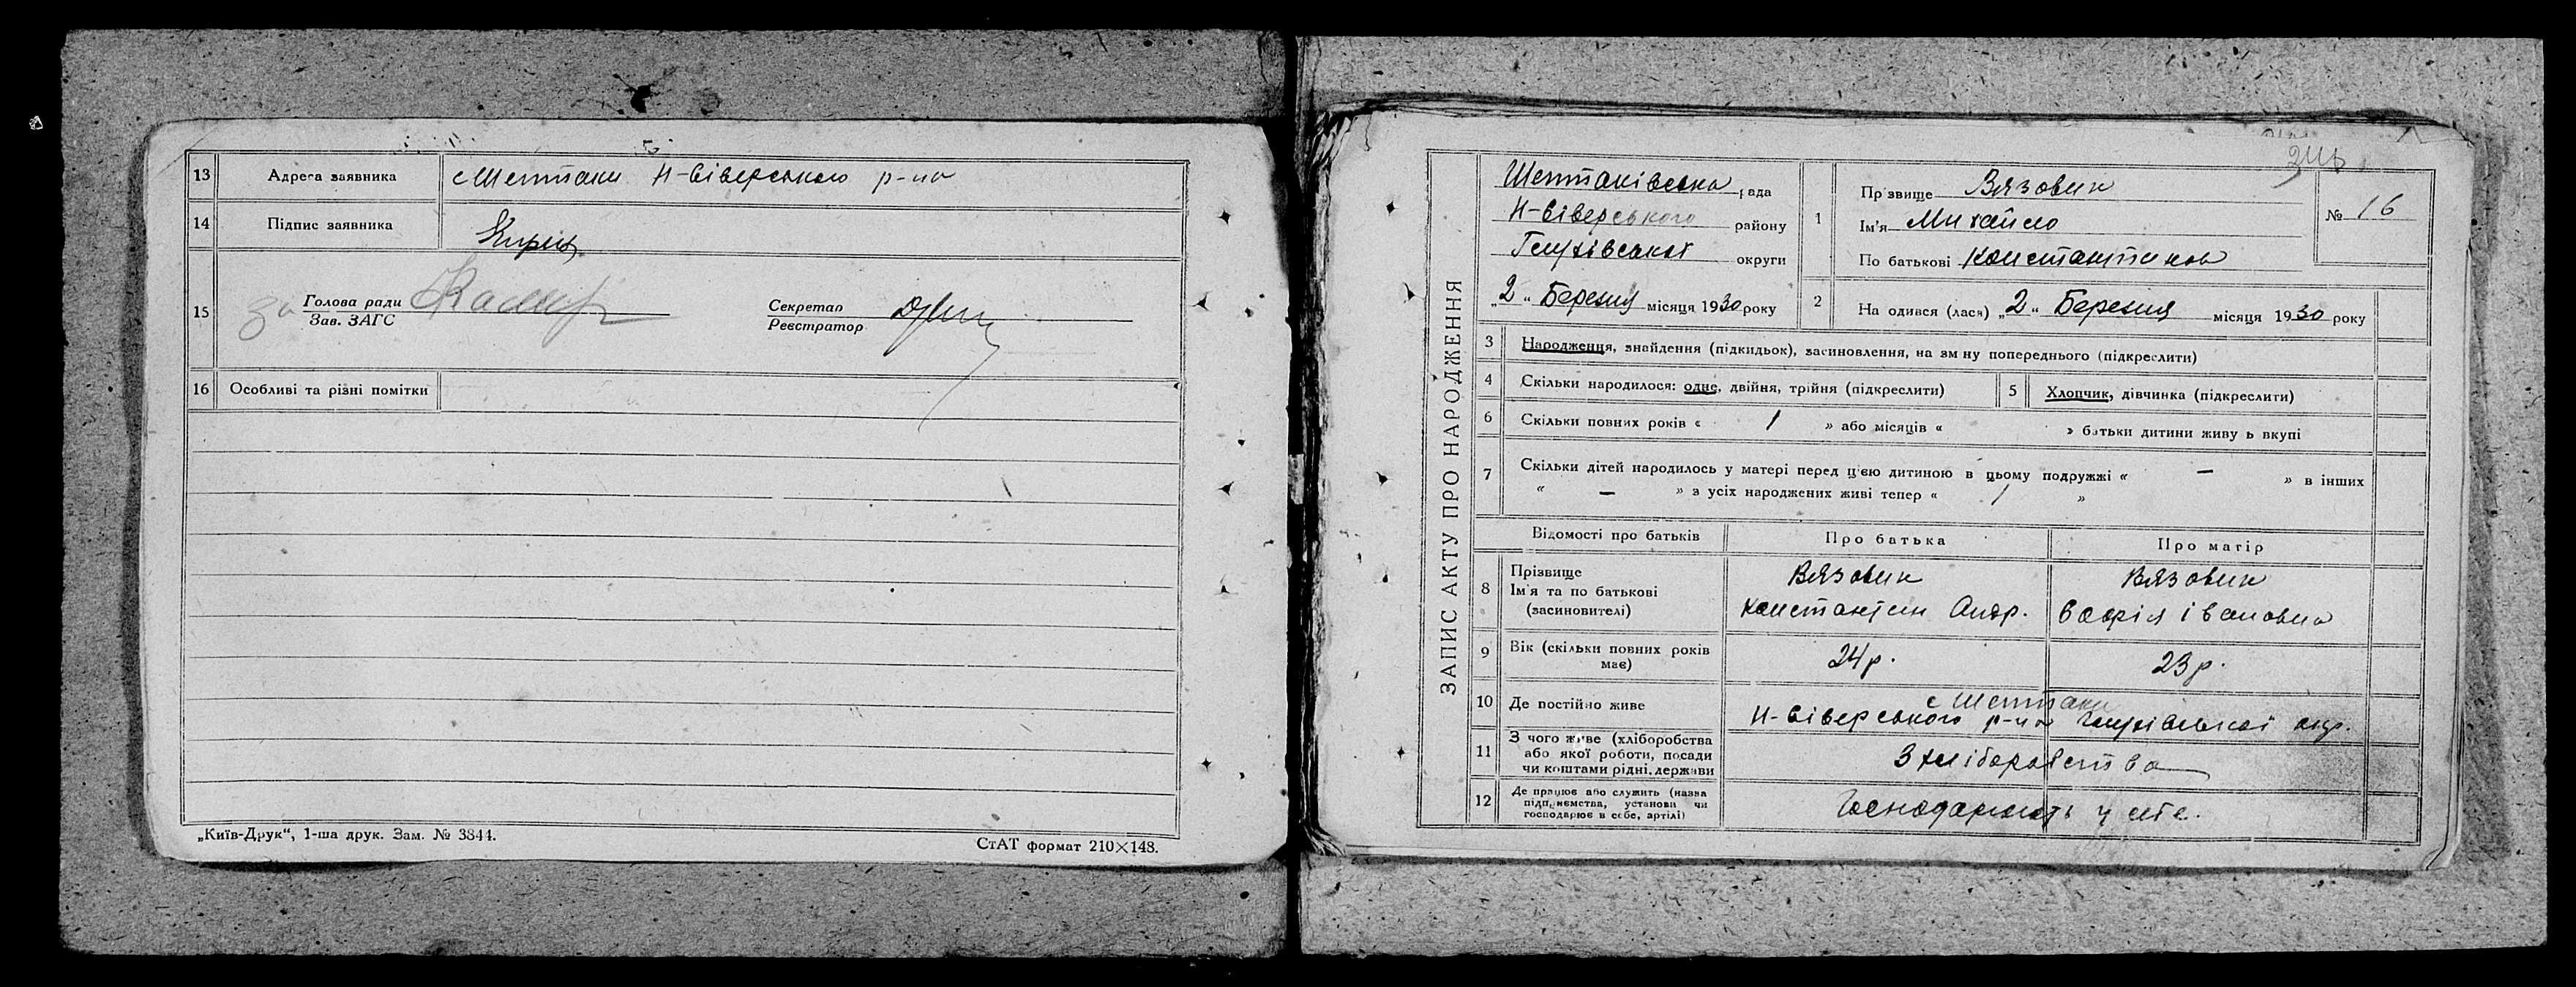 13 Адреса заявника с Шептаки Н-Сіверського р-на
14 Підпис заявника
15 за Голова ради
Зав. ЗАГС
Секретар
Реєстратор
16 Особливі та різні помітки
„Київ-Друк“, 1-ша друк. Зам. № 3844.
СтАТ формат 210×148.
ЗАПИС АКТУ ПРО НАРОДЖЕННЯ
Шептаківська рада
Н-Сіверського району
Глухівської округи
„2“ Березня місяця 1930 року
1 Прізвище Вязовик
Ім'я Михайло
По батькові Константинов
№ 16
2 На одився (лася) „2“ Березня місяця 1930 року
3 Народження, знайдення (підкидьок), засиновлення, на зм ну попереднього (підкреслити)
4 Скільки народилося: одне, двійня, трійня (підкреслити)
5 Хлопчик, дівчинка (підкреслити)
6 Скільки повних років « 1 » або місяців « » батьки дитини живу ь вкупі
7 Скільки дітей народилось у матері перед цією дитиною в цьому подружжі « — » в інших
« — » з усіх народжених живі тепер « 1 »
Відомості про батьків Про батька Про матір
8 Прізвище Вязовик Вязовик
Ім'я та по батькові Константин Андр. Івановна
(засновителі)
9 Вік (скільки повних років має) 24 р. 23 р.
10 Де постійно живе с Шептаки
Н-Сіверського р-на Глухівської окр.
11 З чого живе (хліборобства
або якої роботи, посади
чи коштами рідні, держави
З хліборобства
12 Де працює або служить (назва
підприємства, установи чи
господарює в себе, артілі)
Господарюють у себе.